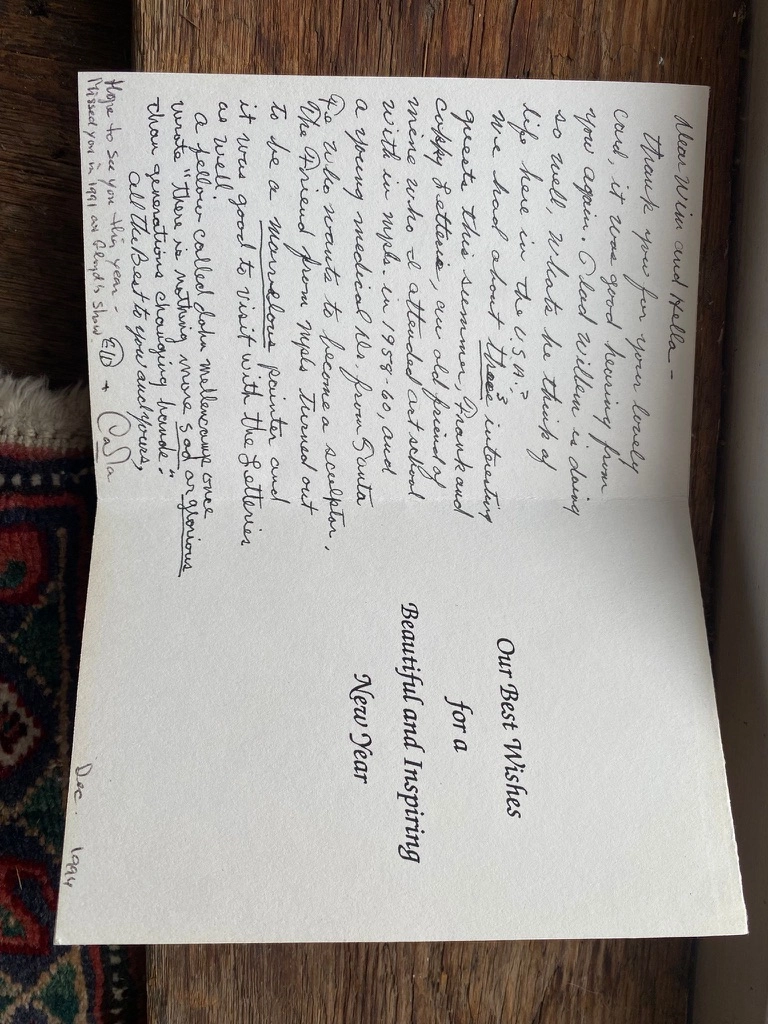 Dear Wim and Hella -
Thank you for your lovely
card, it was good hearing from
you again. Glad Willem is doing
so well, whats he think of
life here in the U.S.A.?
We had about three 3 interesting
guests this summer, Frank and
cuppy Letterie, an old friend of
mine who I attended art school
with in mpls. in 1959-60, and
a young medical Dr. from Santa
Fe who wants to become a sculptor.
The Friend from Mpls turned out
to be a marvelous painter and
it was good to visit with the Letteries
as well.
A fellow called John Mellencamp once
wrote "there is nothing more sad or glorious
than generations changing hands."
All the Best to you and yours,
Hope to see you this year -
Missed you in 1991 at show.
Our Best Wishes
for a
Beautiful and Inspiring
New Year
Dec. 1994